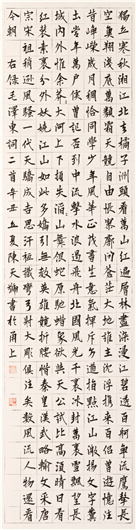 獨立寒秋湘江北去橘子洲頭看萬山紅遍層林盡染漫江碧透百舸爭流鷹擊長
空魚翔淺底萬類霜天競自由悵寥廓問蒼茫大地誰主沉浮攜來百侶曾遊憶往
昔崢嶸歲月稠恰同學少年風華正茂書生意氣揮斥方遒指點江山激揚文字糞
土當年萬戶侯曾記否到中流擊水浪遏飛舟北國風光千里冰封萬里雪飄望長
城內外惟余莽莽大河上下頓失滔滔山舞銀蛇原馳蠟象欲與天公試比高須晴日看
紅裝素裹分外妖嬈江山如此多嬌引無數英雄競折腰惜秦皇漢武略輸文采唐
宗宋祖稍遜風騷一代天驕成吉思汗祇識彎弓射大雕俱往矣數風流人物還看
今朝 右錄毛澤東詞二首辛丑夏陳天卿書於甬上